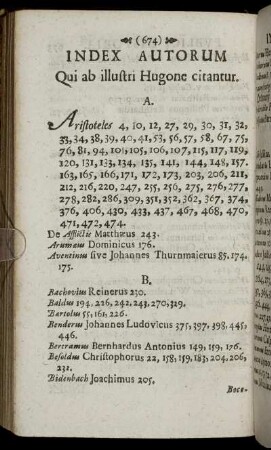 (674)
INDEX AUTORUM
Qui ab illustri Hugone citantur.
A.
Aristoteles 4, 10, 12, 27, 29, 30, 31, 32,
33, 34, 38, 39, 40, 41, 53, 56, 57, 58, 67, 75,
76, 81, 94, 101, 105, 106, 107, 115, 117, 119,
120, 131, 133, 134, 135, 141, 144, 148, 157.
163, 165, 166, 171, 172, 173, 203, 206, 211,
212, 216, 220, 247, 255, 256, 275, 276, 277,
278, 282, 286, 309, 351, 352, 362, 367, 374,
376, 406, 430, 433, 437, 467, 468, 470,
471, 472, 474.
De Afflictis Matthæus 243.
Arumæus Dominicus 176.
Aventinus sive Johannes Thurnmaierus 85, 174,
175.
B.
Bachovius Reinerus 230.
Baldus 194, 226, 242, 243, 270, 329.
Bartolus 55, 161, 226.
Benderus Johannes Ludovicus 375, 397, 398, 445,
446.
Bertramus Bernhardus Antonius 149, 159, 176.
Besoldus Christophorus 22, 158, 159, 183, 204, 206,
231.
Bidenbach Joachimus 205.
Boce-